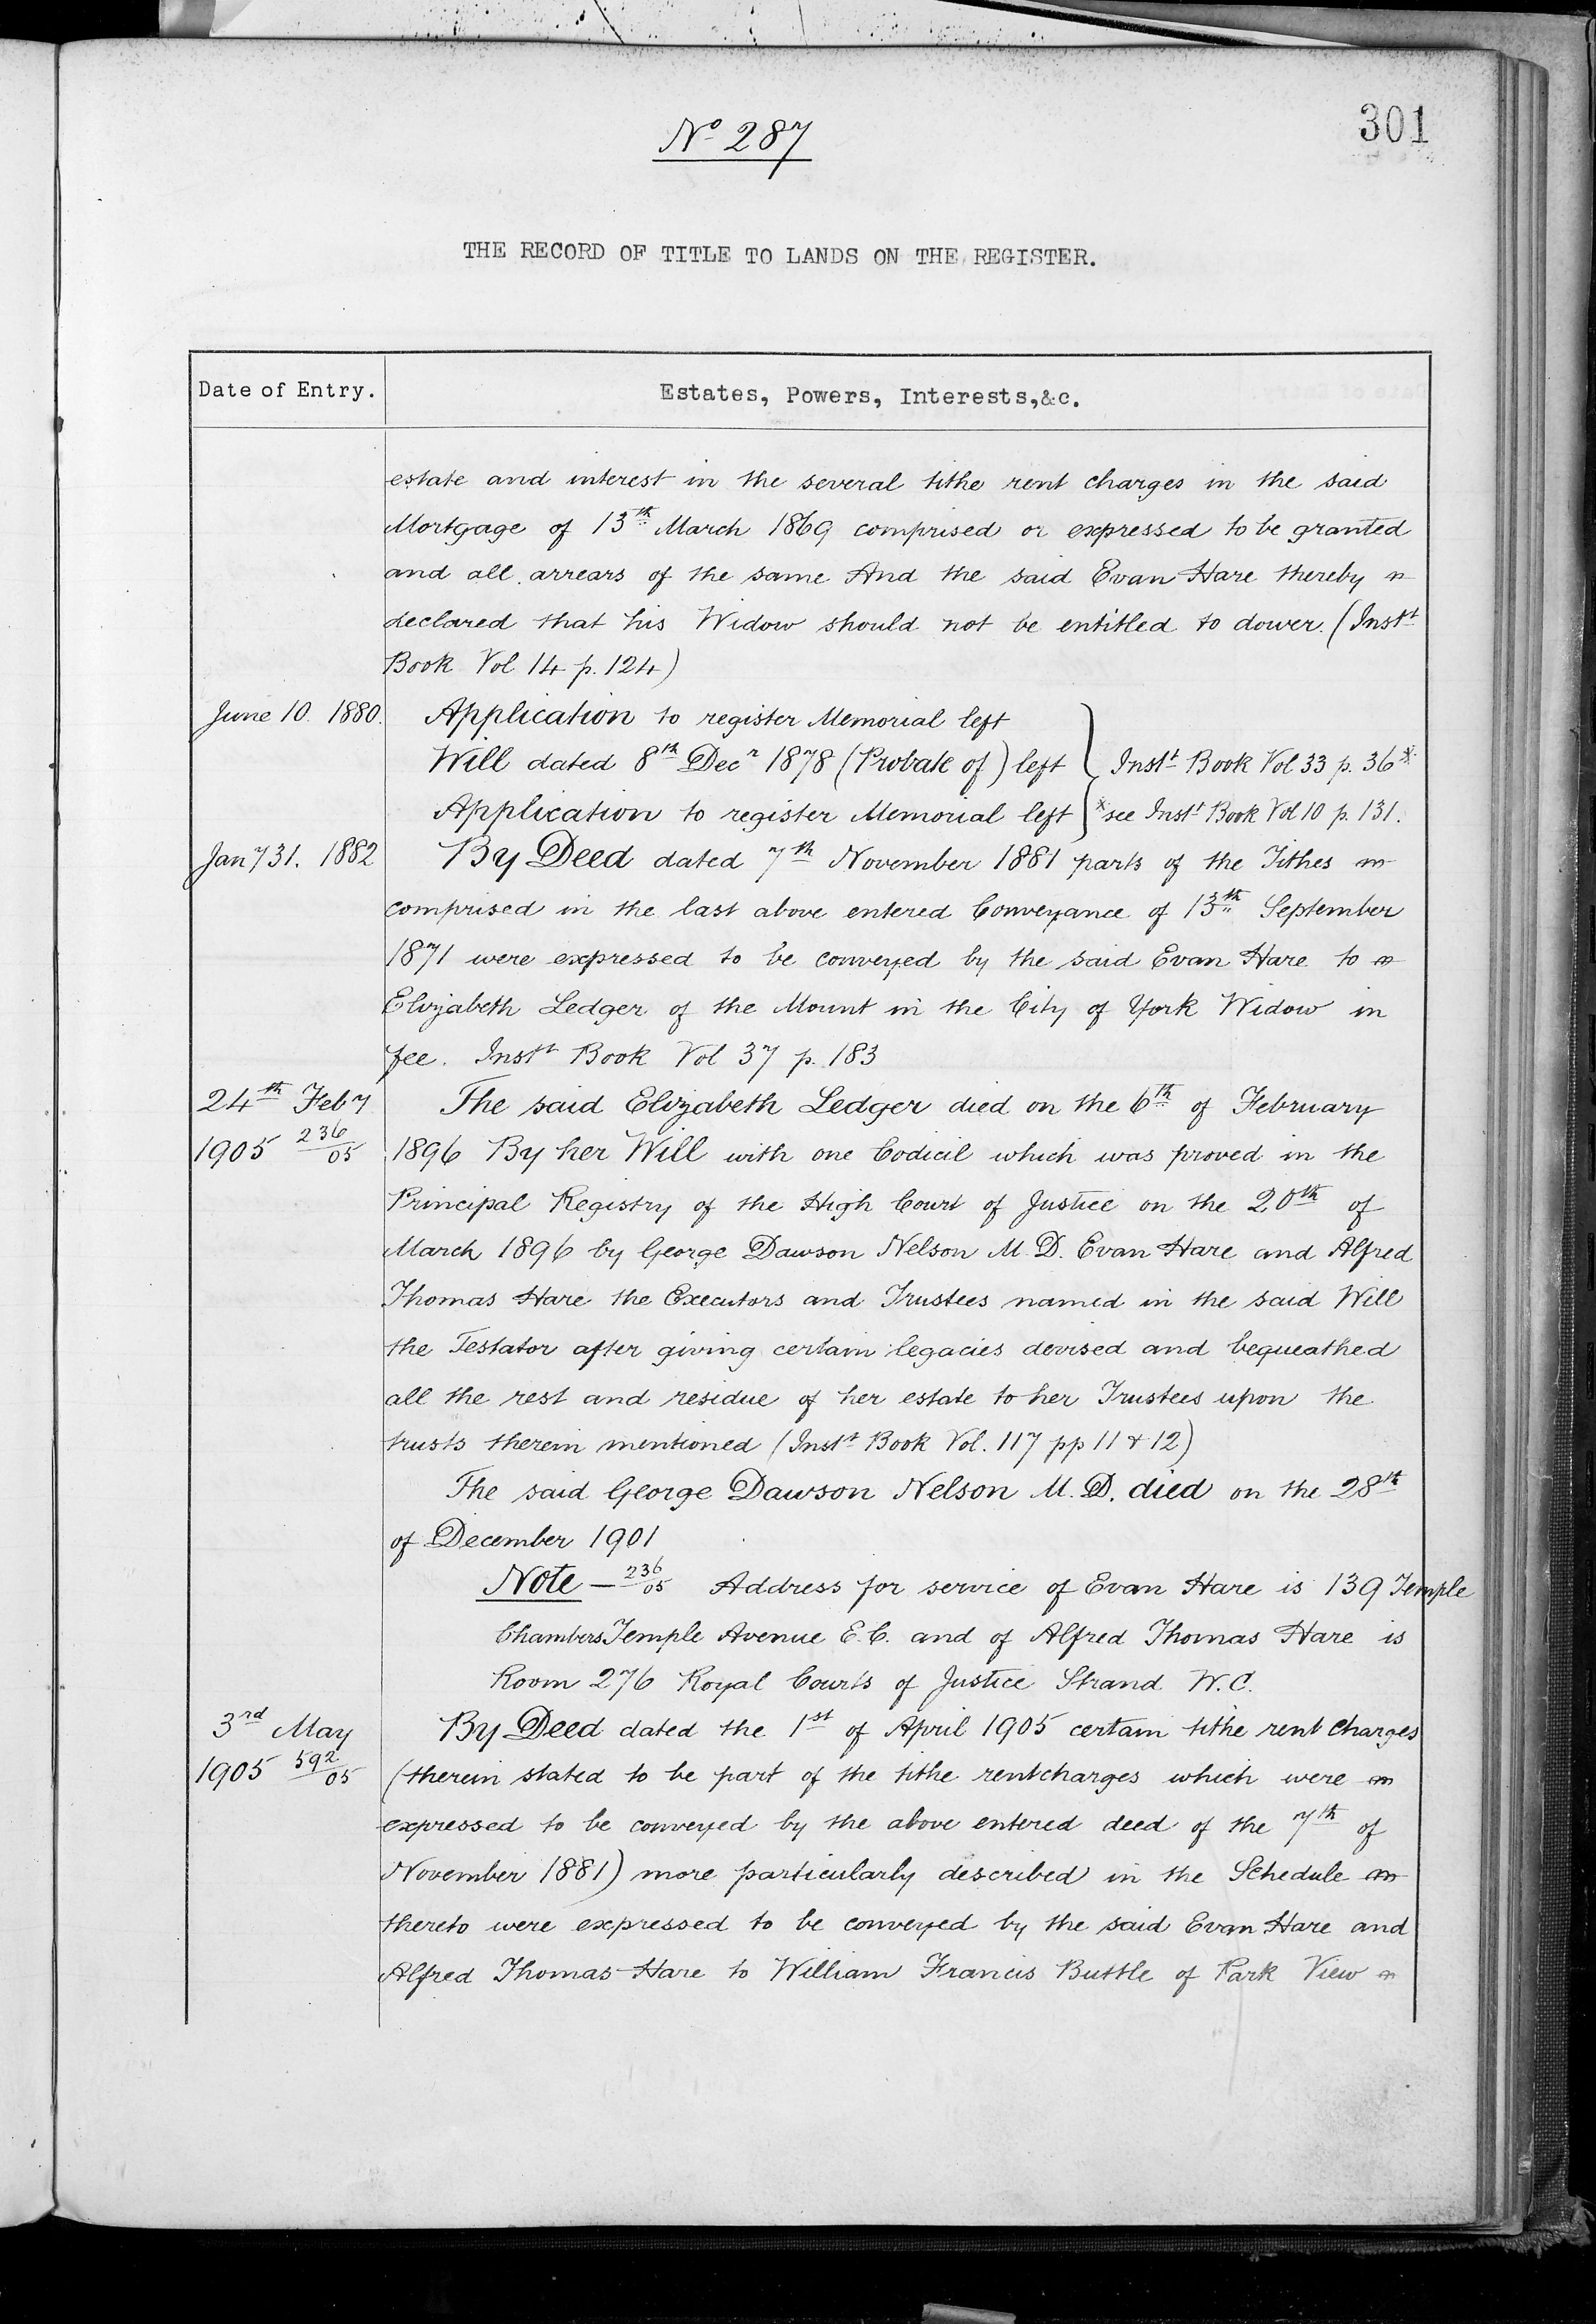 301
Nº 287
THE RECORD OF TITLE TO LANDS ON THE REGISTER.
Date of Entry. Estates, Powers, Interests,&c.
estate and interest in the several tithe rent charges in the said
Mortgage of 13th March 1869 comprised or expressed to be granted
and all arrears of the same And the said Evan Hare thereby
declared that his Widow should not be entitled to dower. (Instt
Book Vol 14 p. 124)
June 10. 1880. Application to register Memorial left
Will dated 8th Decr 1878 (Probate of) left } Instt Book Vol 33 p. 36*
Application to register Memorial left } *see Instt Book Vol 10 p. 131.
Jany 31. 1882 By Deed dated 7th November 1881 parts of the Tithes
comprised in the last above entered Conveyance of 13th September
1871 were expressed to be conveyed by the said Evan Hare to
Elizabeth Ledger of the Mount in the City of York Widow in
fee. Instt Book Vol 37 p. 183
24th Feby The said Elizabeth Ledger died on the 6th of February
1905 236/05 1896 By her Will with one Codicil which was proved in the
Principal Registry of the High Court of Justice on the 20th of
March 1896 by George Dawson Nelson M.D. Evan Hare and Alfred
Thomas Hare the Executors and Trustees named in the said Will
the Testator after giving certain legacies devised and bequeathed
all the rest and residue of her estate to her Trustees upon the
trusts therein mentioned (Instt Book Vol. 117 pp 11 & 12)
The said George Dawson Nelson M.D. died on the 28th
of December 1901
Note — 236/05 Address for service of Evan Hare is 139 Temple
Chambers Temple Avenue E.C. and of Alfred Thomas Hare is
Room 276 Royal Courts of Justice Strand W.C.
3rd May By Deed dated the 1st of April 1905 certain tithe rent charges
1905 592/05 (therein stated to be part of the tithe rentcharges which were
expressed to be conveyed by the above entered deed of the 7th of
November 1881) more particularly described in the Schedule
thereto were expressed to be conveyed by the said Evan Hare and
Alfred Thomas Hare to William Francis Buttle of Park View